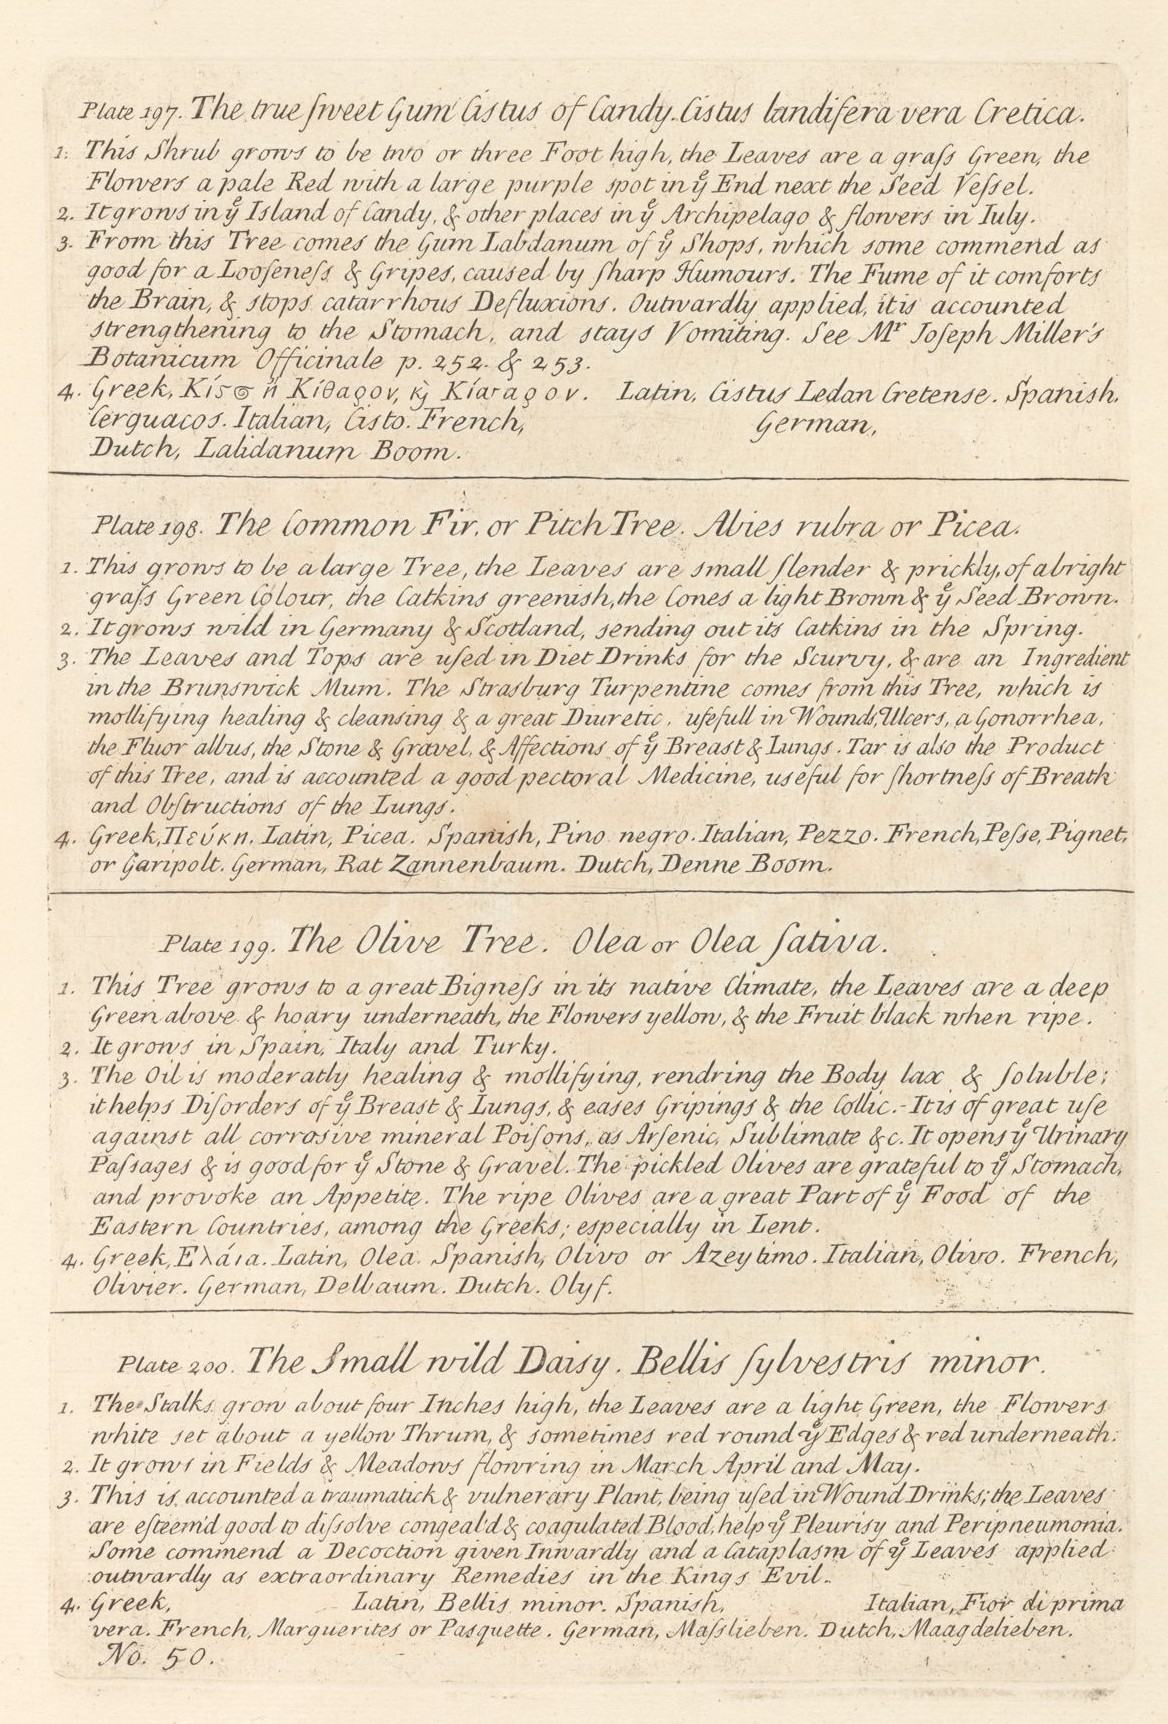 Plate 197. The true ſweet Gum Cistus of Candy. Cistus landifera vera Cretica.
1. This Shrub grows to be two or three Foot high, the Leaves are a graſs Green, the
Flowers a pale Red with a large purple spot in yͤ End next the Seed Veſsel.
2. It grows in yͤ Island of Candy, & other places in yͤ Archipelago & flowers in Iuly.
3. From this Tree comes the Gum Labdanum of yͤ Shops, which some commend as
good for a Looſeneſs & Gripes, caused by ſharp Humours. The Fume of it comforts
the Brain, & stops catarrhous Defluxions. Outwardly applied, it is accounted
strengthening to the Stomach, and stays Vomiting. See Mʳ Joſeph Miller's
Botanicum Officinale p. 252. & 253.
4. Greek, Κίσϛ ἢ Κίθαρον, ϗ̀ Κίσαρον. Latin, Cistus Ledan Cretense. Spanish,
Cerguacos. Italian, Cisto. French, German,
Dutch, Lalidanum Boom.
Plate 198. The Common Fir, or Pitch Tree. Abies rubra or Picea.
1. This grows to be a large Tree, the Leaves are small ſlender & prickly, of a bright
graſs Green Colour, the Catkins greenish, the Cones a light Brown & yͤ Seed Brown.
2. It grows wild in Germany & Scotland, sending out its Catkins in the Spring.
3. The Leaves and Tops are uſed in Diet Drinks for the Scurvy, & are an Ingredient
in the Brunswick Mum. The Strasburg Turpentine comes from this Tree, which is
mollifying healing & cleansing & a great Diuretic, uſefull in Wounds, Ulcers, a Gonorrhea,
the Fluor albus, the Stone & Gravel, & Affections of yͤ Breast & Lungs. Tar is also the Product
of this Tree, and is accounted a good pectoral Medicine, useful for ſhortneſs of Breath
and Obſtructions of the Lungs.
4. Greek, Πεύκη. Latin, Picea. Spanish, Pino negro. Italian, Pezzo. French, Peſse, Pignet,
or Garipolt. German, Rat Zannenbaum. Dutch, Denne Boom.
Plate 199. The Olive Tree. Olea or Olea ſativa.
1. This Tree grows to a great Bigneſs in its native Climate, the Leaves are a deep
Green above & hoary underneath, the Flowers yellow, & the Fruit black when ripe.
2. It grows in Spain, Italy and Turky.
3. The Oil is moderatly healing & mollifying, rendring the Body lax & ſoluble;
it helps Diſorders of yͤ Breast & Lungs, & eases Gripings & the Collic. - It is of great uſe
against all corrosive mineral Poiſons, as Arſenic, Sublimate &c. It opens yͤ Urinary
Paſsages & is good for yͤ Stone & Gravel. The pickled Olives are grateful to yͤ Stomach,
and provoke an Appetite. The ripe Olives are a great Part of yͤ Food of the
Eastern Countries, among the Greeks; especially in Lent.
4. Greek, Ελάια. Latin, Olea. Spanish, Olivo or Azeytimo. Italian, Olivo. French,
Olivier. German, Delbaum. Dutch. Olyf.
Plate 200. The Small wild Daisy. Bellis ſylvestris minor.
1. The Stalks grow about four Inches high, the Leaves are a light Green, the Flowers
white set about a yellow Thrum, & sometimes red round yͤ Edges & red underneath.
2. It grows in Fields & Meadows flowring in March April and May.
3. This is accounted a traumatick & vulnerary Plant, being uſed in Wound Drinks; the Leaves
are eſteem'd good to diſsolve congeal'd & coagulated Blood, help yͤ Pleurisy and Peripneumonia.
Some commend a Decoction given Inwardly and a Cataplasm of yͤ Leaves applied
outwardly as extraordinary Remedies in the Kings Evil.
4. Greek, Latin, Bellis minor. Spanish, Italian, Fior di prima
vera. French, Marguerites or Pasquette. German, Maſslieben. Dutch, Maagdelieben.
No. 50.